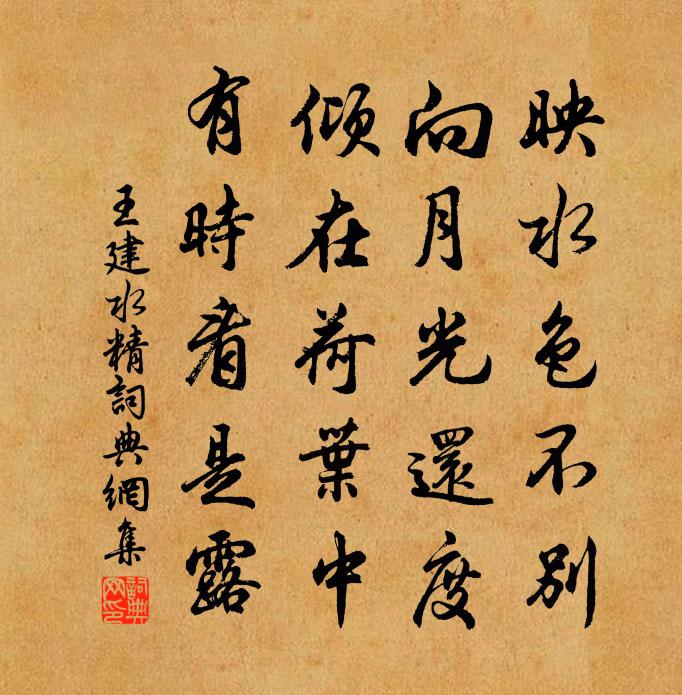 映水色不別
向月光還度
傾在荷葉中
有時看是露
王建水精詞典網集
詞典網印